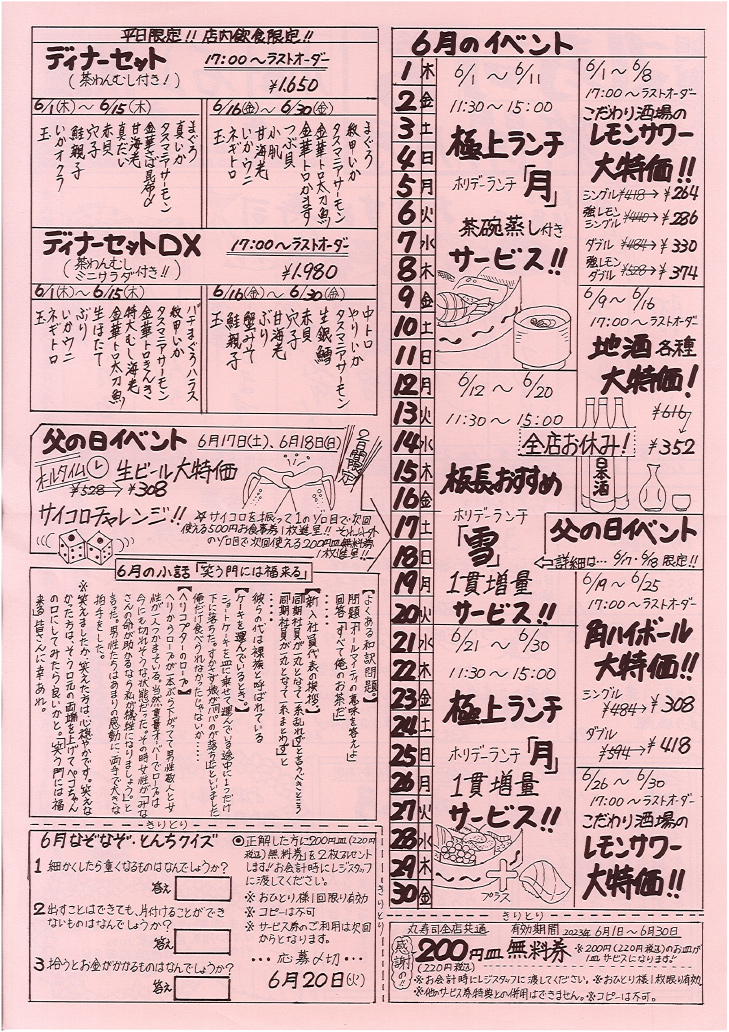 平日限定!! 店内飲食限定!!
ディナーセット
(茶わんむし付き!)
17:00〜ラストオーダー
¥1.650
6/1(木)〜6/15(木)
まぐろ
真いか
タスマニアサーモン
金華さば昆布〆
甘海老
真だい
赤貝
穴子
鮭親子
いかオクラ
玉
6/16(金)〜6/30(金)
まぐろ
紋甲いか
タスマニアサーモン
金華トロ太刀魚
金華トロかます
つぶ貝
小肌
甘海老
いかウニ
ネギトロ
玉
ディナーセットDX
(茶わんむし
ミニサラダ付き!!)
17:00〜ラストオーダー
¥1.980
6/1(木)〜6/15(木)
バチまぐろハラス
紋甲いか
タスマニアサーモン
金華トロきんき
特大むし海老
金華トロ太刀魚
生ほたて
ぶり
いかウニ
ネギトロ
玉
6/16(金)〜6/30(金)
中トロ
やりいか
タスマニアサーモン
生銀鱈
赤貝
穴子
甘海老
ぶり
蟹みそ
鮭親子
玉
父の日イベント 6月17日(土)、6月18日(日)
2日間限定
オールタイム 生ビール大特価
¥528→¥308
サイコロチャレンジ!!
☆サイコロを振って1のゾロ目で次回
使える500円お食事券1枚進呈!! それ以外
のゾロ目で次回使える200円皿無料券
1枚進呈!!
6月の小話「笑う門には福来る」
【よくある和訳問題。】
問題「オールマイティの意味を答えよ」
回答「すべて俺のお茶だ」
【新入社員代表の挨拶。】
「同期社員が一丸となって一糸乱れず」と言うべきところ
「同期社員が一丸となって一糸まとわず」と
・・・・
彼らの代は裸族と呼ばれている
【ケーキを運んでいるとき。】
ショートケーキを皿に乗せて運んでいる途中に1つだけ
下に落ちた。すかさず娘が「パパのが落ちた」といいました
俺だけ食べられなかったじゃないか…
【ヘリコプターのロープ】
ヘリからロープが一本ぶら下がってて男性数人と女
性が一人つかまっている。当然重量オーバーでロープは
今にも切れそうな状態だった。その時女性が「みな
さんの命が助かるなら私が犠牲になりましょう。」と
言った。男性たちはあまりの感動に、両手で大きな
拍手をした。
※笑えましたか?笑えた方は、心穏やかです。笑えな
かた方は、そう口元の両端を上げてペコちゃん
の口にしてみたら良いかと。「笑う門には福
来る」皆さんに幸あれ。
きりとり
6月なぞなぞ・とんちクイズ
1 細かくしたら重くなるものはなんでしょうか?
答え
2 出すことはできても、片付けることができ
ないものはなんでしょうか?
答え
3 拾うとお金がかかるものはなんでしょうか?
答え
◎正解した方に200円皿(220円
税込)無料券を2枚プレゼント
します!!お会計時にレジスタッフ
に渡してください。
※おひとり様1回限り有効
※コピーは不可
※サービス券のご利用は次回
からとなります。
…応募〆切…
6月20日(火)
きりとり
6月のイベント
1 木
2 金
3 土
4 日
5 月
6 火
7 水
8 木
9 金
10 土
11 日
12 月
13 火
14 水
15 木
16 金
17 土
18 日
19 月
20 火
21 水
22 木
23 金
24 土
25 日
26 月
27 火
28 水
29 木
30 金
6/1〜6/11
11:30〜15:00
極上ランチ
ホリデーランチ「月」
茶碗蒸し付き
サービス!!
6/12〜6/20
11:30〜15:00
全店お休み!
板長おすすめ
ホリデーランチ
「雪」
1貫増量
サービス!!
6/21〜6/30
11:30〜15:00
極上ランチ
ホリデーランチ「月」
1貫増量
サービス!!
プラス
6/1〜6/8
17:00〜ラストオーダー
こだわり酒場の
レモンサワー
大特価!!
シングル ¥418→¥264
強レモン
シングル ¥440→¥286
ダブル ¥484→¥330
強レモン
ダブル ¥528→¥374
6/9〜6/16
17:00〜ラストオーダー
地酒各種
大特価!
¥616
¥352
日本酒
父の日イベント
詳細は… 6/17・6/18限定!!
6/19〜6/25
17:00〜ラストオーダー
角ハイボール
大特価!!
シングル
¥484→¥308
ダブル
¥594→¥418
6/26〜6/30
17:00〜ラストオーダー
こだわり酒場の
レモンサワー
大特価!!
きりとり
丸寿司全店共通 有効期間 2023年6月1日〜6月30日
感謝の!!
200円皿無料券
(220円税込)
※200円(220円税込)のお皿が
1皿サービスになります!!
※お会計時にレジスタッフに渡してください。※おひとり様1枚限り有効
※他のサービス券特典との併用はできません。※コピーは不可。